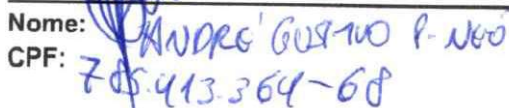 Nome: ANDRÉ GUSTAVO P. NETO
CPF: 785.413.364-68